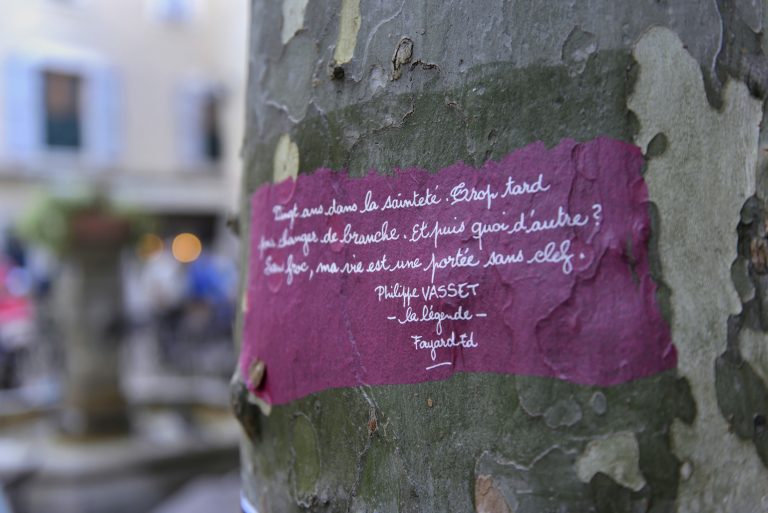 Vingt ans dans la sainteté. Trop tard
pour changer de branche. Et puis quoi d'autre?
Sans froc, ma vie est une portée sans clef.
Philippe VASSET
- la légende -
Fayard Ed